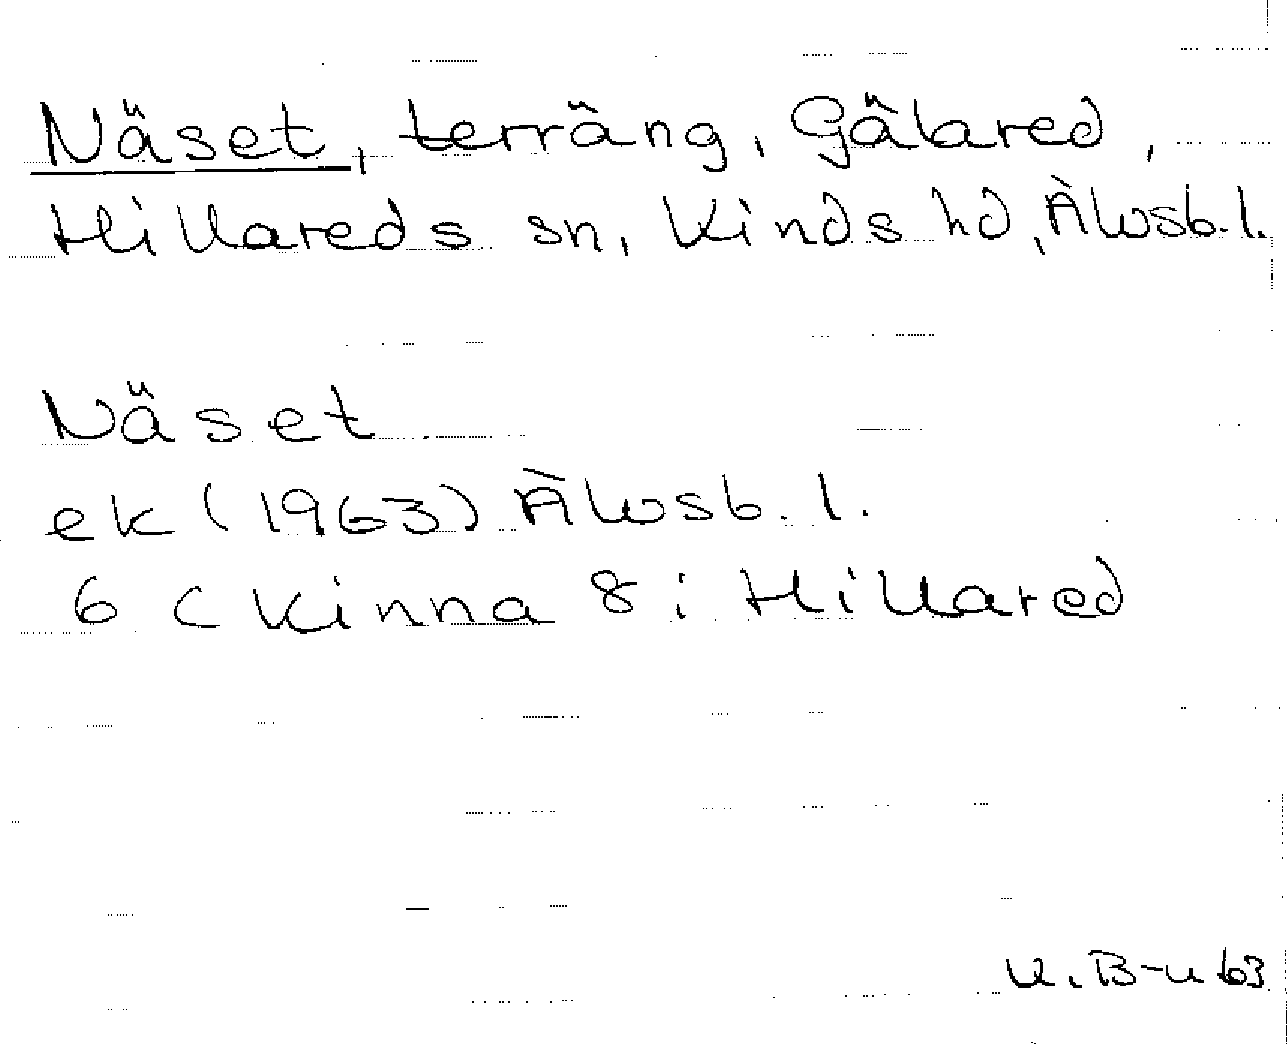 Näset, terräng, Gälared,
Hillareds sn, Kinds hd, Älvsb. l.
Näset
ek (1963) Älvsb. l.
6 C Kinna 8i Hillared
K. B-n 63